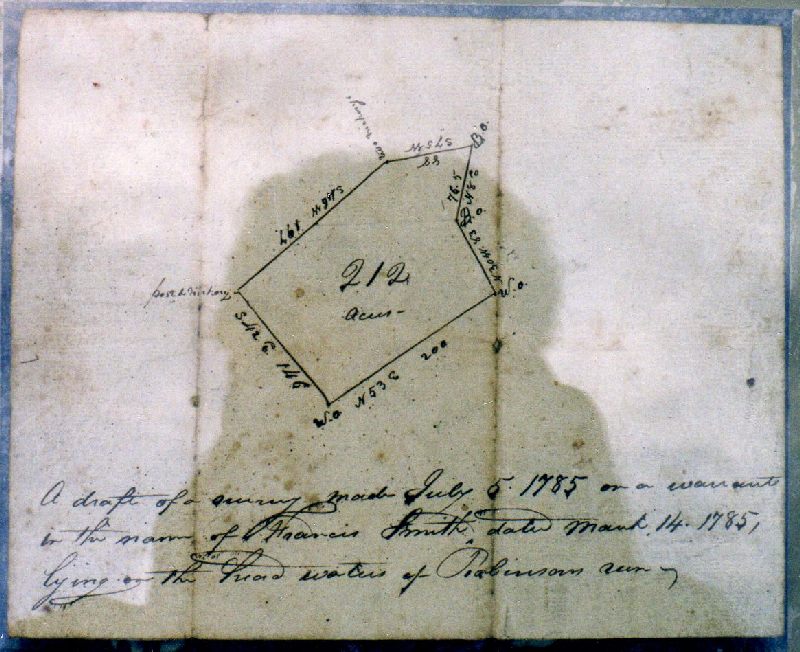 B.O.
N 75 W
88
76.5
N 8 E
N 30 W 83
W.O.
S 46 W
197
212
acres
post & hickory
S 42 E 146
N 53 E 200
W.O
A draft of a survey made July 5. 1785 on a warrant
in the name of Francis Smith, dated March 14. 1785,
lying on the head waters of Robinsons run